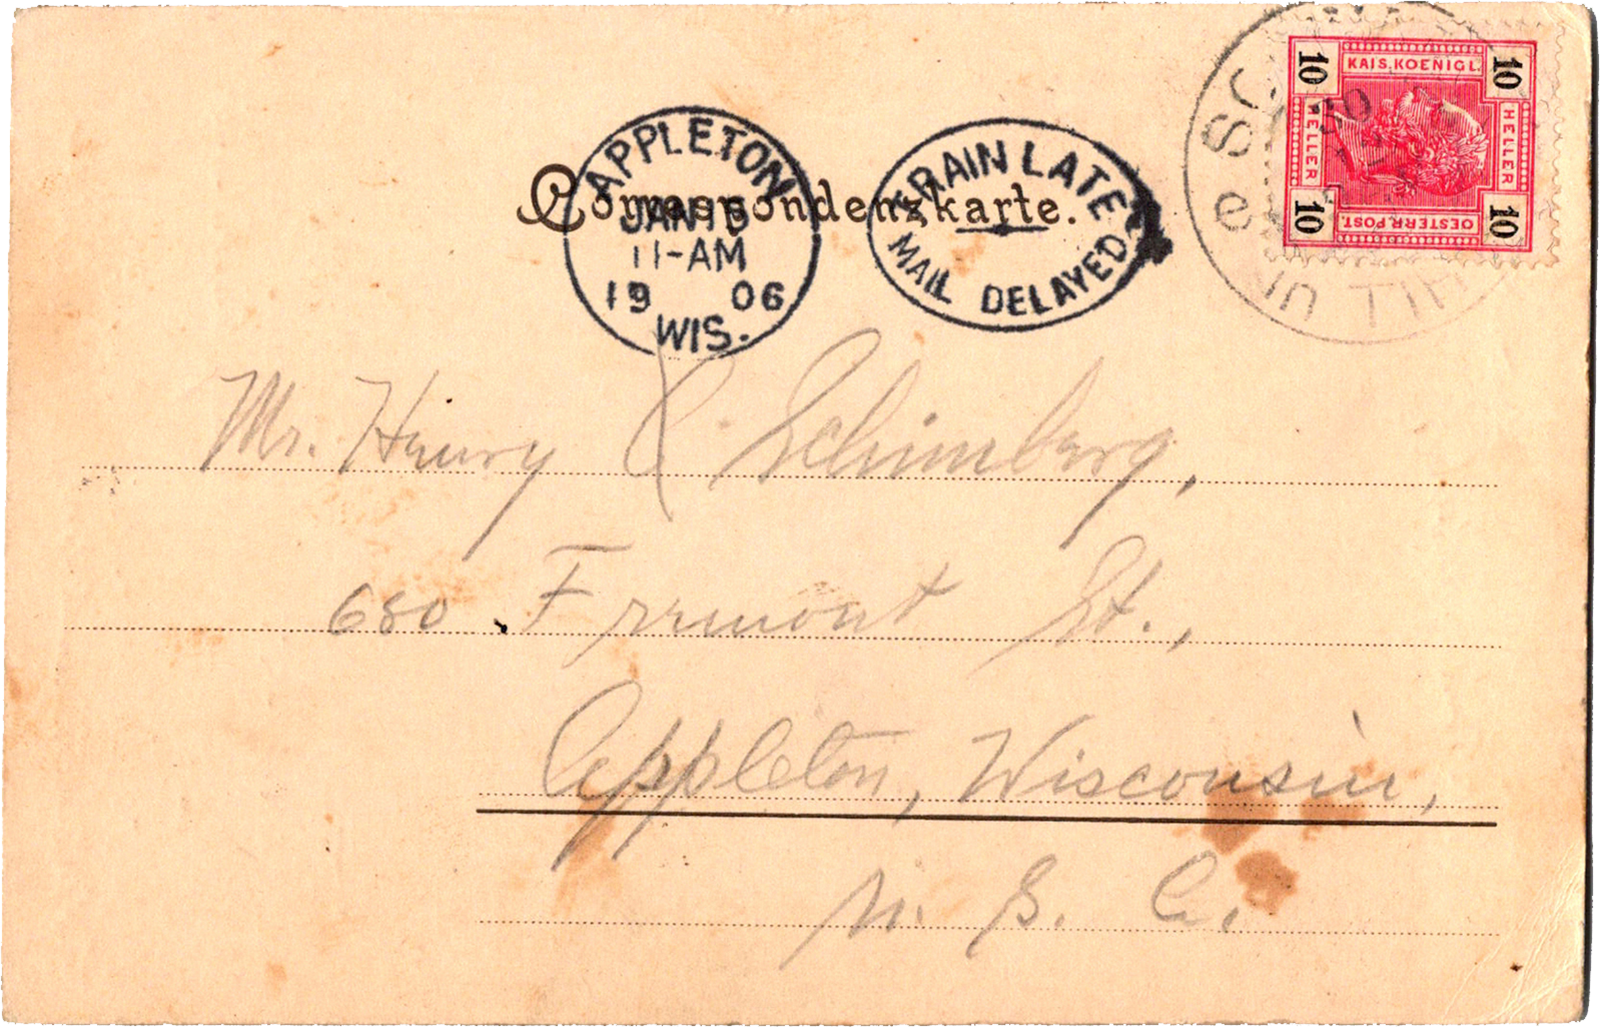 Correspondenzkarte.
APPLETON
JAN 15
11-AM
19 06
WIS.
TRAIN LATE
MAIL DELAYED
KAIS. KOENIGL.
10 10
HELLER HELLER
10 10
OESTERR. POST.
30
Mr. Henry C. Schimberg,
680 Fremont St.,
Appleton, Wisconsin,
U. S. A.